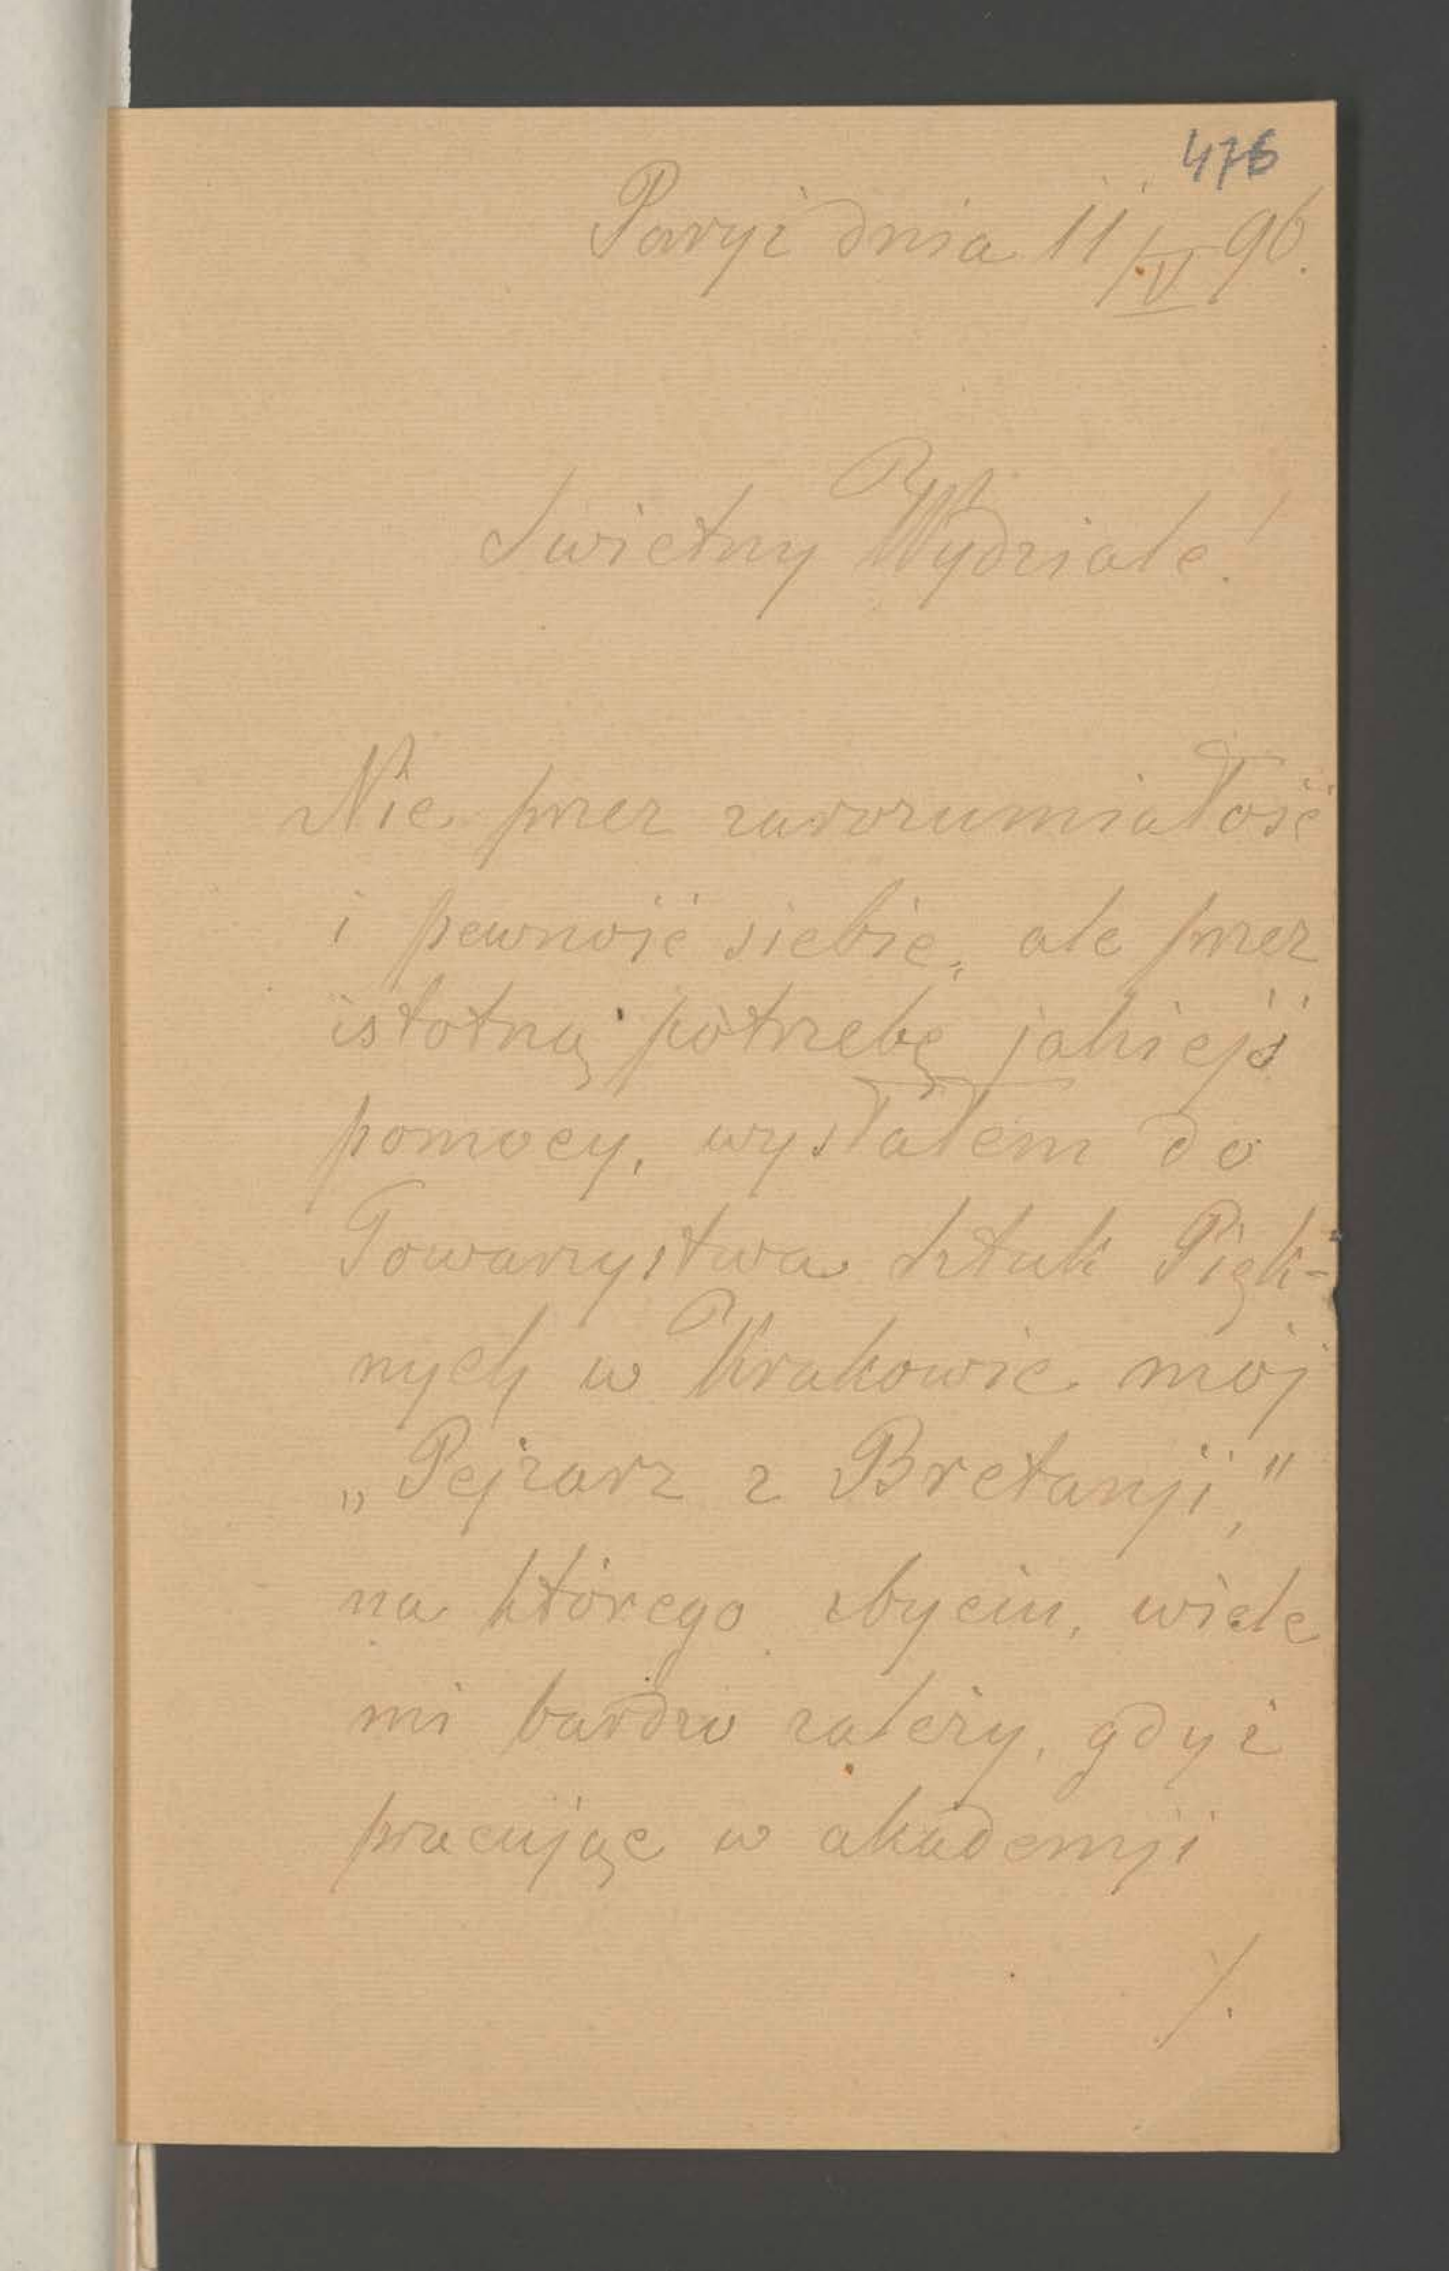 476
Paryż dnia 11/IV 96.
Świetny Wydziale!
Nie przez zarozumiałość
i pewność siebie, ale przez
istotną potrzebę jakiejś
pomocy, wysłałem do
Towarzystwa Sztuk Pięk-
nych w Krakowie mój
„Pejzarz z Bretanji,"
na którego zbyciu, wiele
mi bardzo zależy, gdyż
pracując w akademji
/.